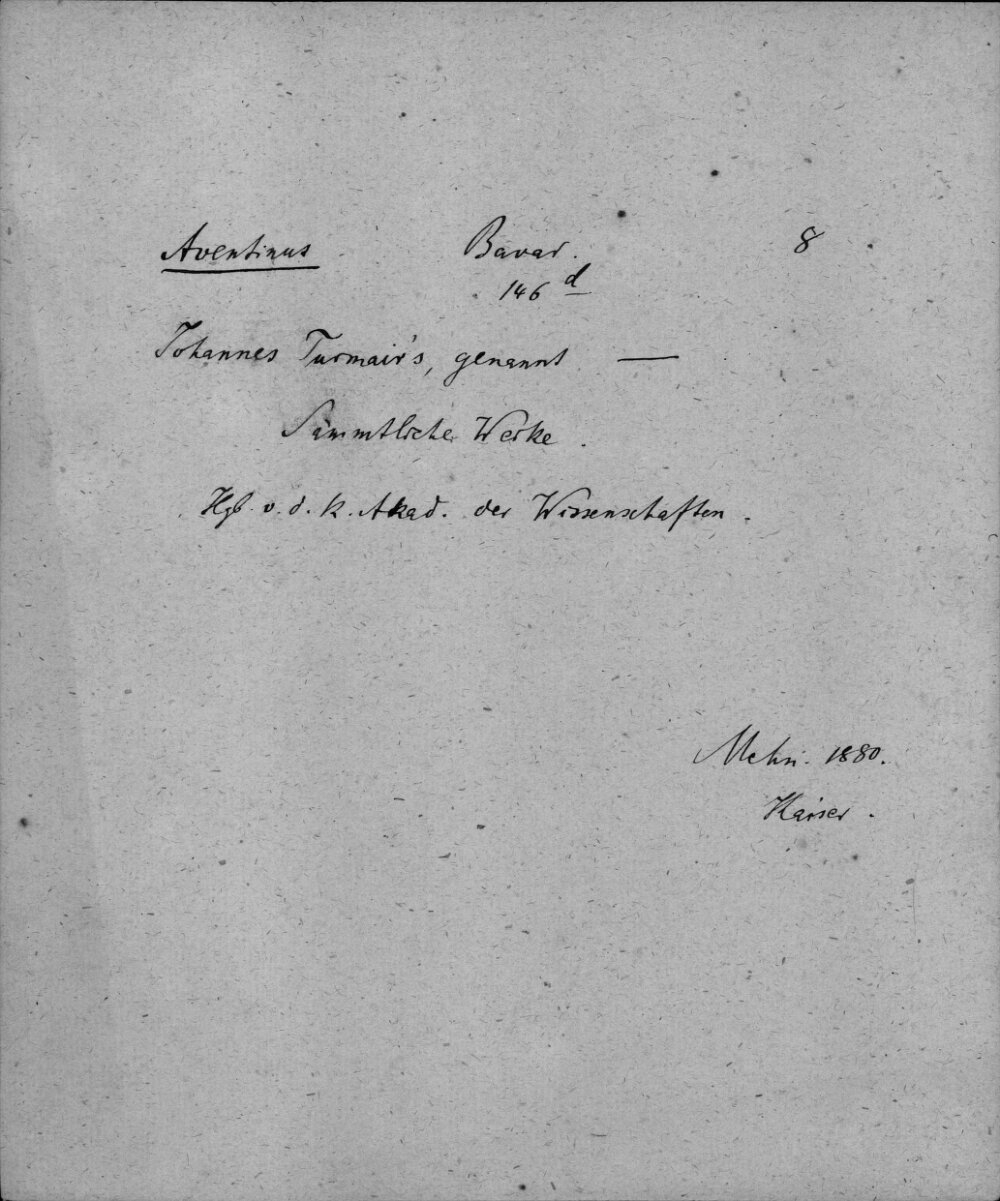 Aventinus Bavar. 8
146 d
Johannes Turmair's, genannt —
Sämmtliche Werke.
Hgb. v. d. k. Akad. der Wissenschaften.
1880.
Kaiser.